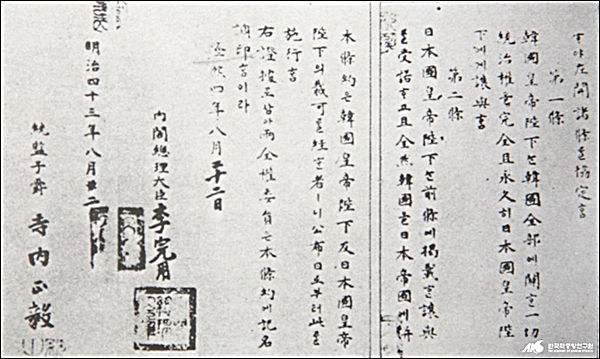 ᄒᆞ야左開諸條를協定홈
第一條
韓國皇帝陛下는韓國全部에關ᄒᆞᆫ一切
統治權을完全且永久히日本國皇帝陛
下에게讓與홈
第二條
日本國皇帝陛下는前條에揭載ᄒᆞᆫ讓與
를受諾ᄒᆞ고且全然韓國을日本帝國에併
本條約은韓國皇帝陛下及日本國皇帝
陛下의裁可를經ᄒᆞᆫ者ㅣ니公布日로부터此를
施行홈
右證據로삼아兩全權委員은本條約에記名
調印홈이라
隆熙四年八月二十二日
內閣總理大臣 李完用
明治四十三年八月廿二
統監子爵 寺内正毅
AKS 한국학중앙연구원